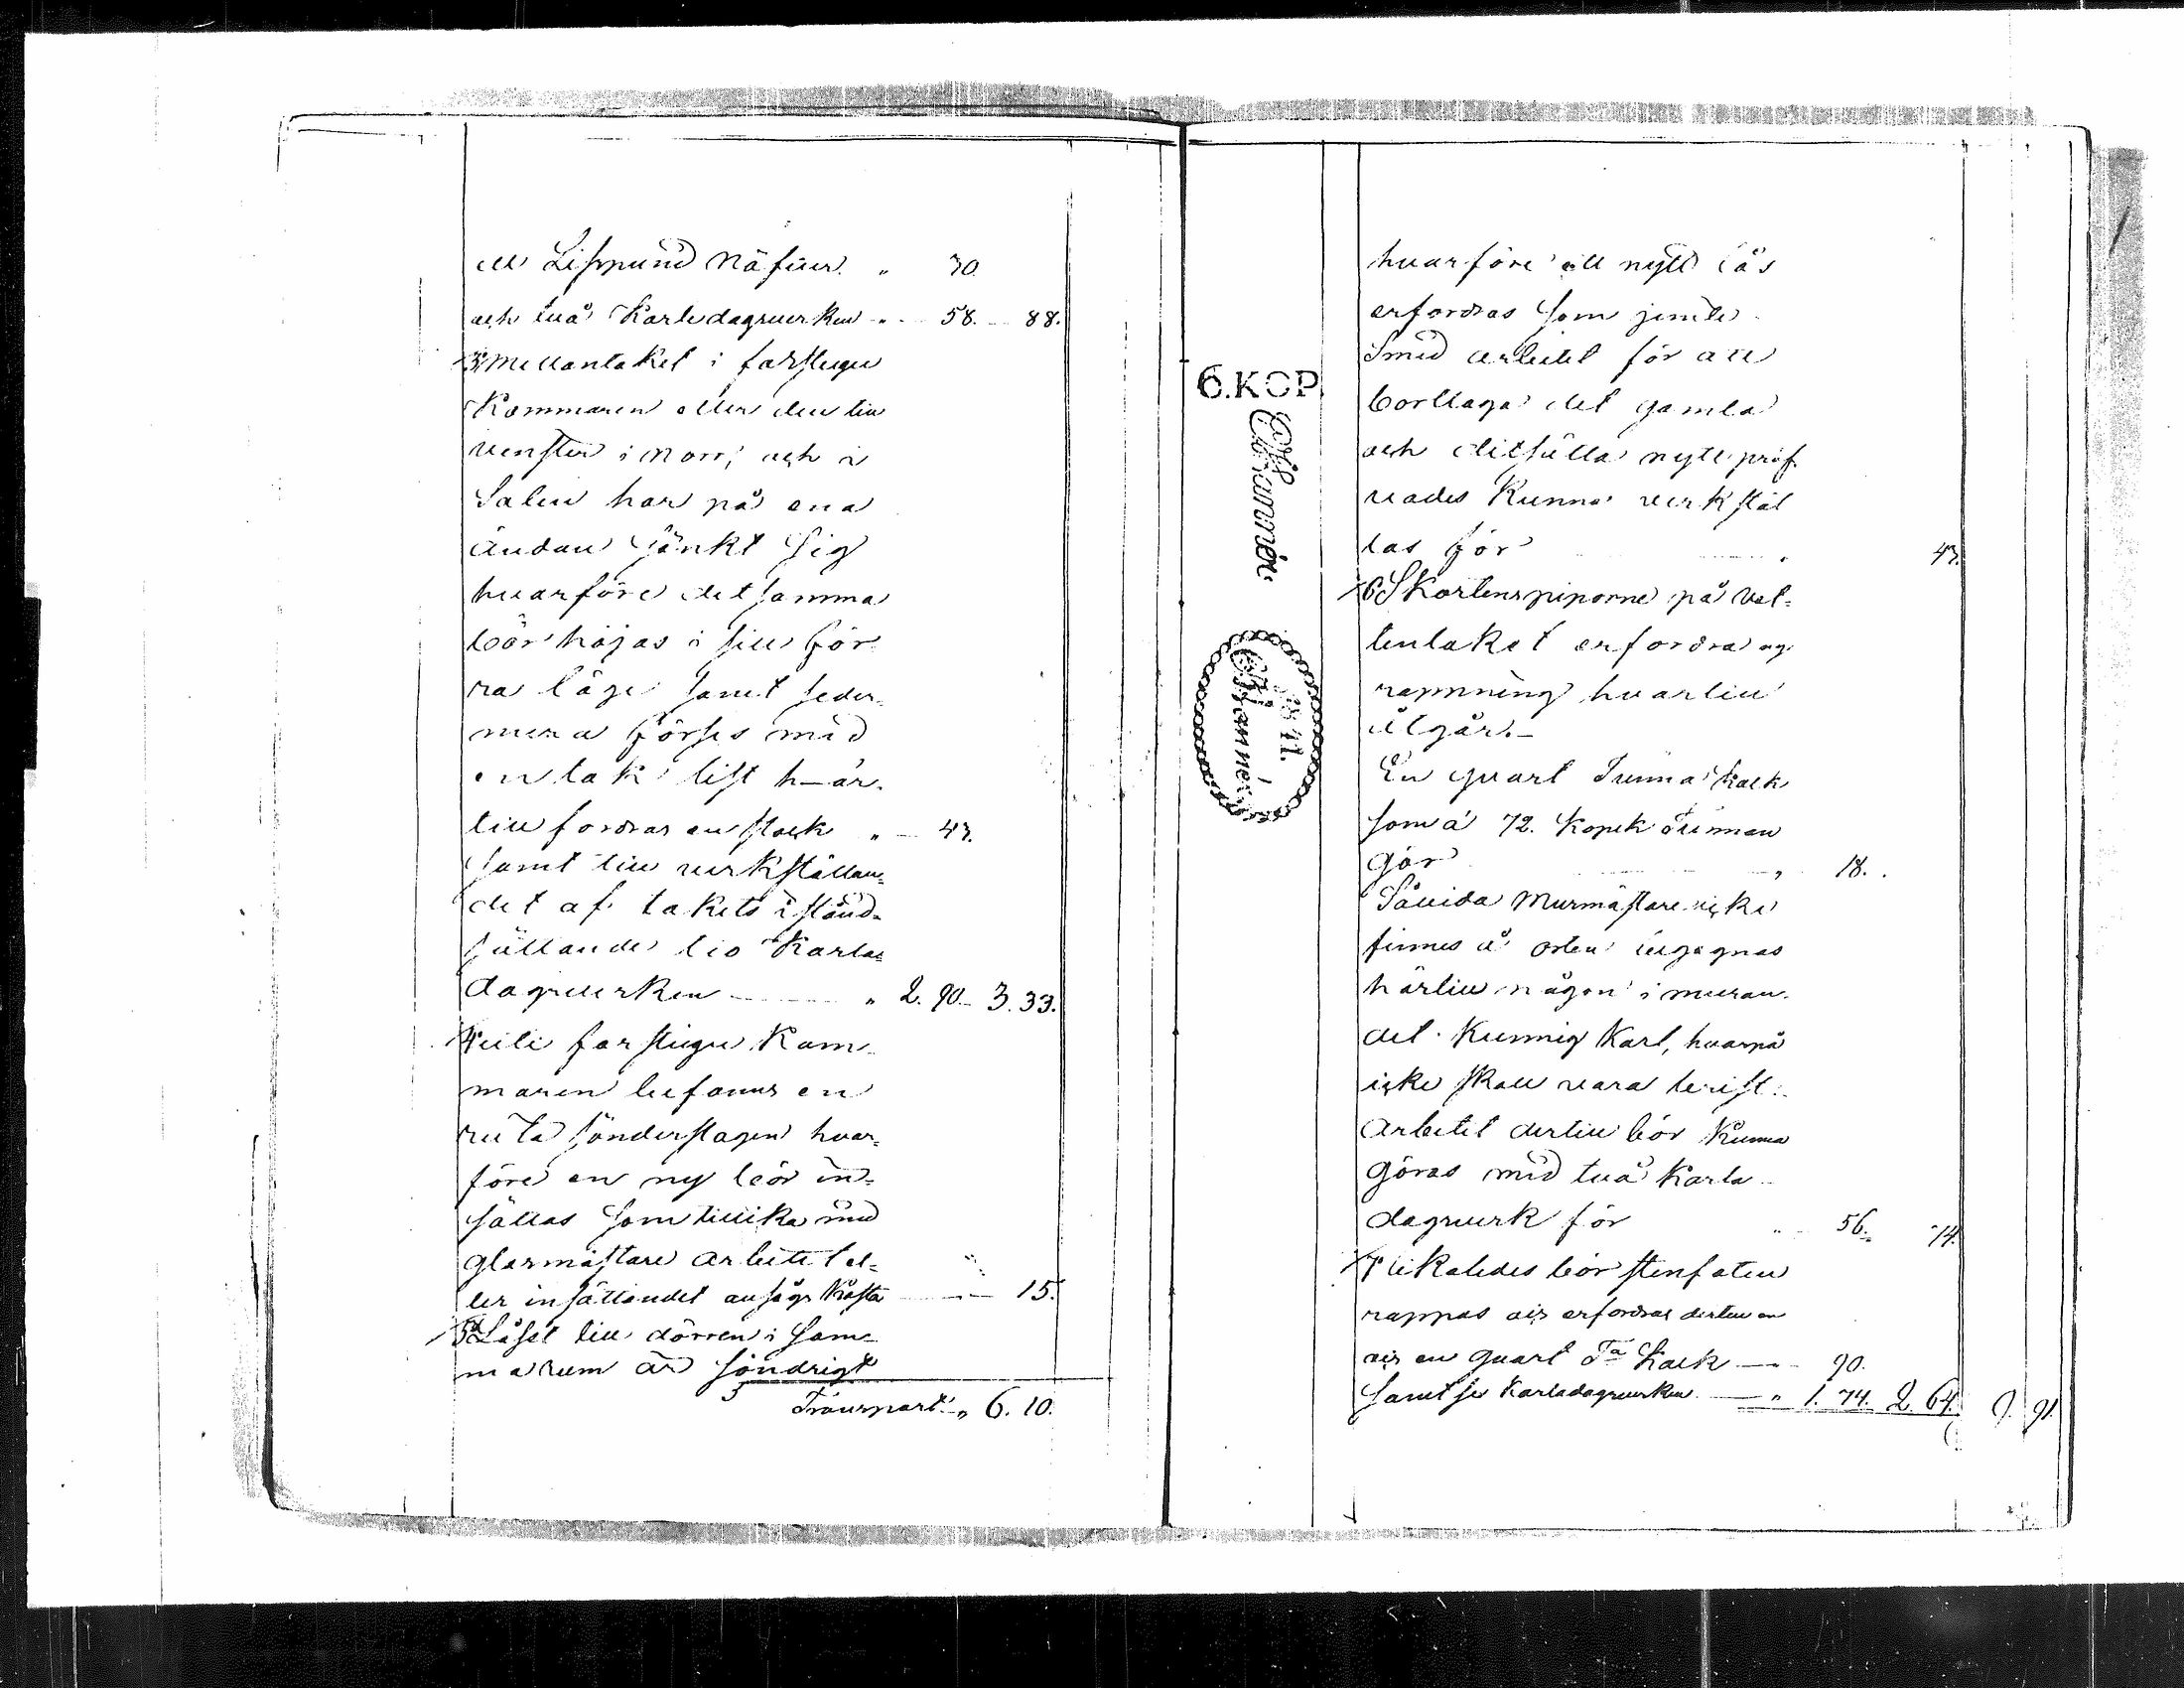 ett Lispund Näfver „ 30.
och två Karledagsverken „ 58. 88.
3o Mellantaket i farstugu
Kammaren eller den till
venster i norr, och i
Salen har på ena
ändan sänkt sig
hvarföre detsamma
bör höjas i sitt för
ra läge samt seder=
mera förses med
en tak list h-är.
till fordras en stock „ 43.
samt till verkställan=
det af takets i stånd=
sättande tio Karla=
dagsverken „ 2. 90. 3. 33.
4o uti farstugu Kam=
maren befanns en
ruta sönderslagen hvar=
före en ny bör in=
sättas som tillika med
glasmästare arbetet el=
ler insättandet ansågs kosta 15.
5o Låset till dörren i sam=
ma rum är söndrigt
Transport. „ 6. 10.
hvarföre ett nytt lås
erfordras som jemte
Smid arbetet för att
borttaga det gamla
och ditsätta nytt pröf
vades kunna verkstäl
las för „ 43.
6o Skorstenspiporne på Vat=
tentaket erfordra ny
rappning hvartill
åtgår.
En quart Tunna kalk
som a' 72. Kopek Tunnan
gör „ 18.
Såvida Murmästare icke
finnes å orten engagnas
härtill någon i muran=
det Kunnig Karl, hvarpå
icke skall vara brist.
Arbetet dertill bör Kunna
göras med två Karla
dagsverk för „ 56. 74.
7o likaledes bör stenfoten
rappas
en quart Ta Kalk 90.
samt sex Karladagsverken „ 1. 74. 2. 64. 9. 91.
6. KOP.
Charta Sigillata
1841.